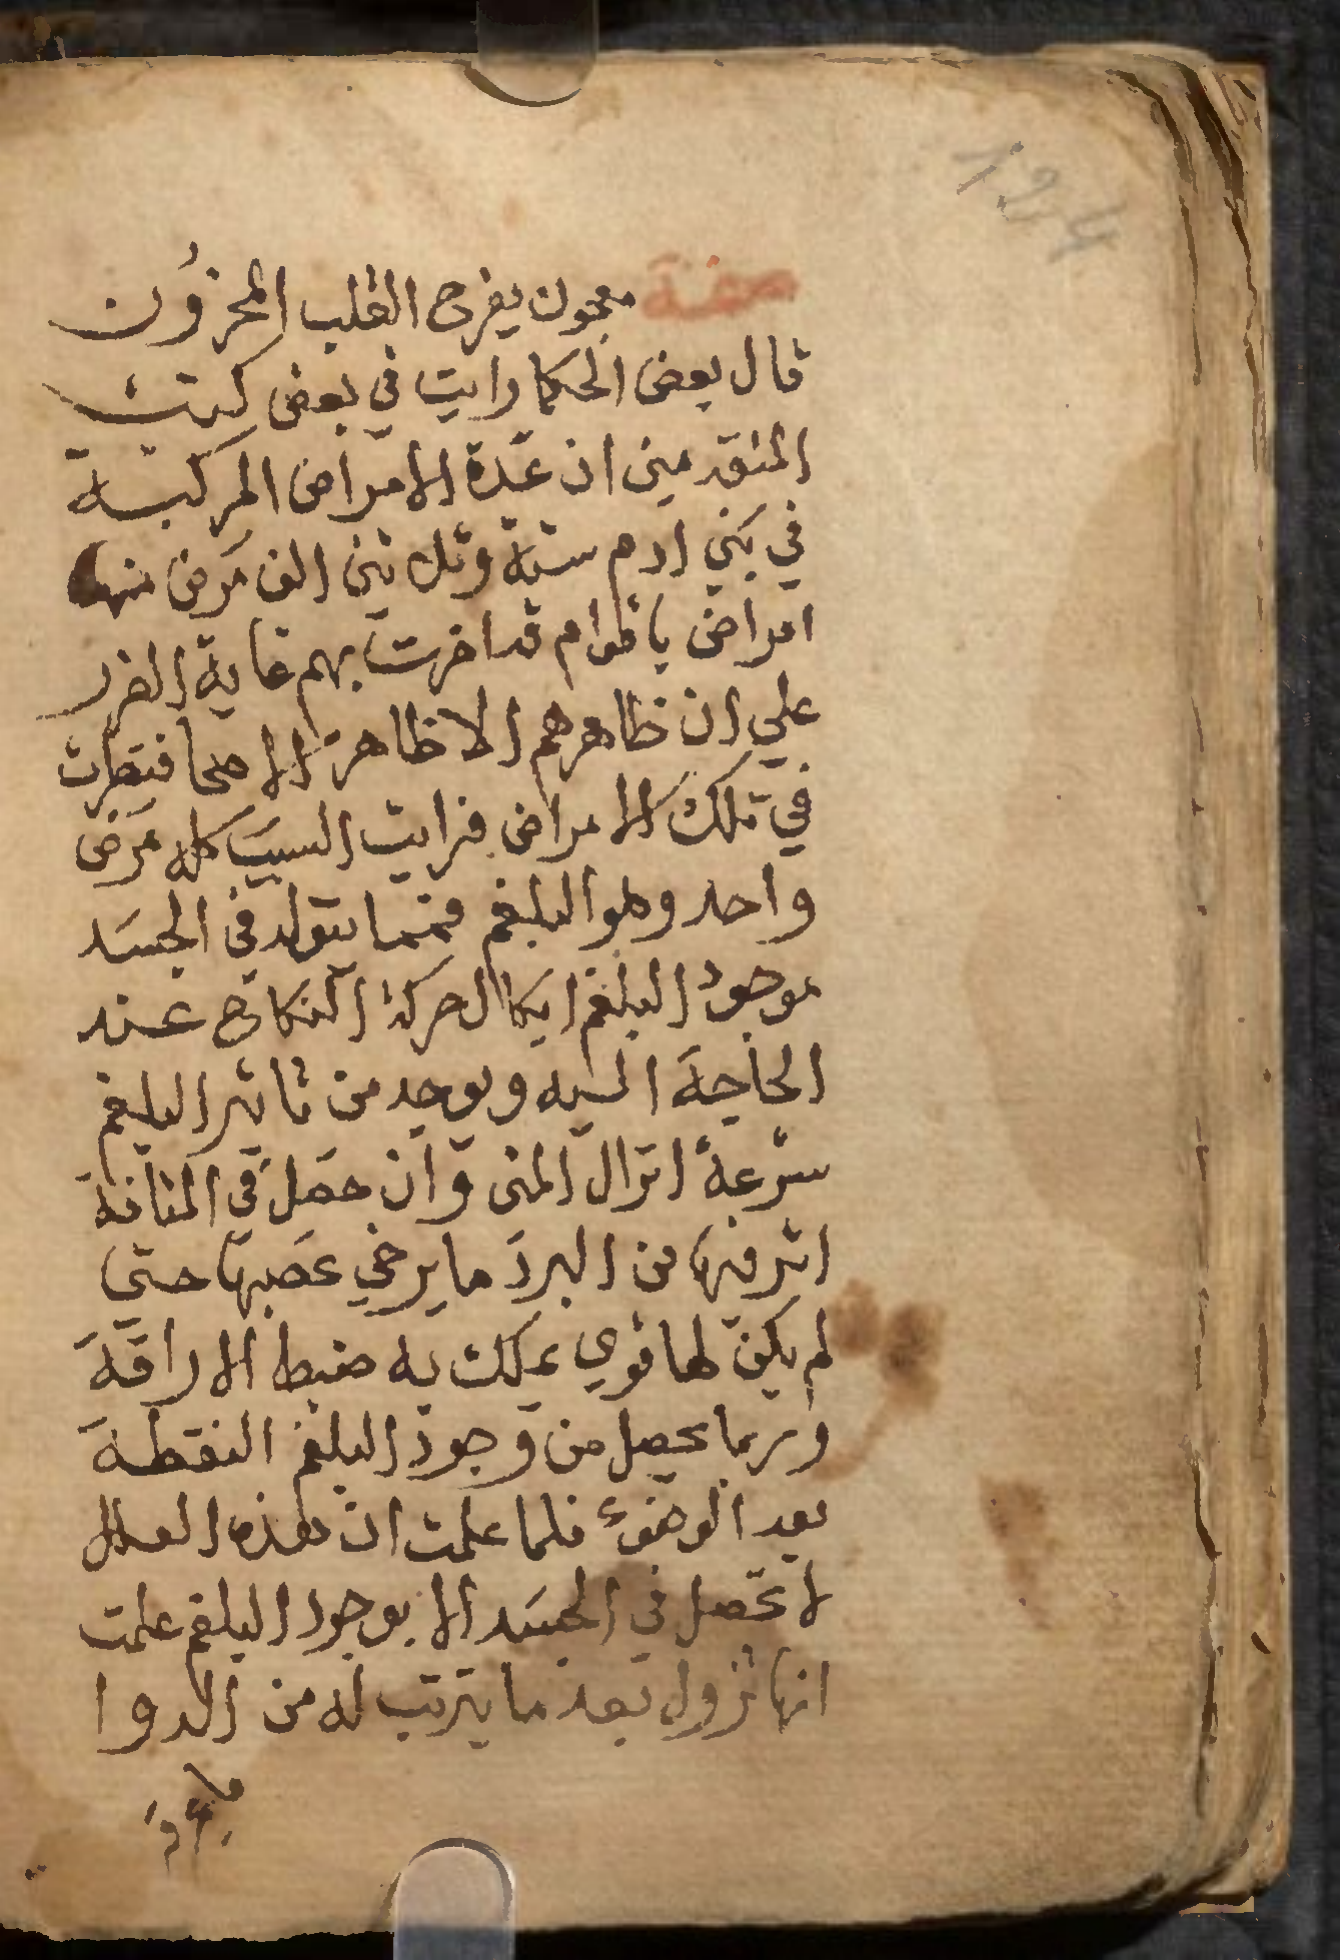 124
صفة معجون يفرح القلب المحزُون
قال بعض الحكما رايت في بعض كتب
المتقدمين ان عدة الامراض المركبة
في بَني ادم ستة وثلاثين الف مَرض منها
امراض باقوام قد اضرت بهم غاية الضرر
علي ان ظاهرهم الا ظاهرة الاصحا فنظرت
في تلك الامراض فرايت السبَب كله مَرَض
واحد وهو البلغم فمما يتولد في الجسَد
موجود البلغم ابكال حركة النكاح عند
الحاجة اليه ويوجد من تاثير البلغم
سُرعة انزال المنى وان حصَل في المثانة
اثر فيها من البرد ما يرخي عصَبها حتي
لم يكن لها قوي يملك به ضبط الاراقة
وربما يحصل من وجود البلغم النقطة
بعد الوضوء فلما علمت ان هذه العلل
لا تحصل في الجسَد الا بوجود البلغم علمت
انها تزول بعد ما يترتب له من الدوا